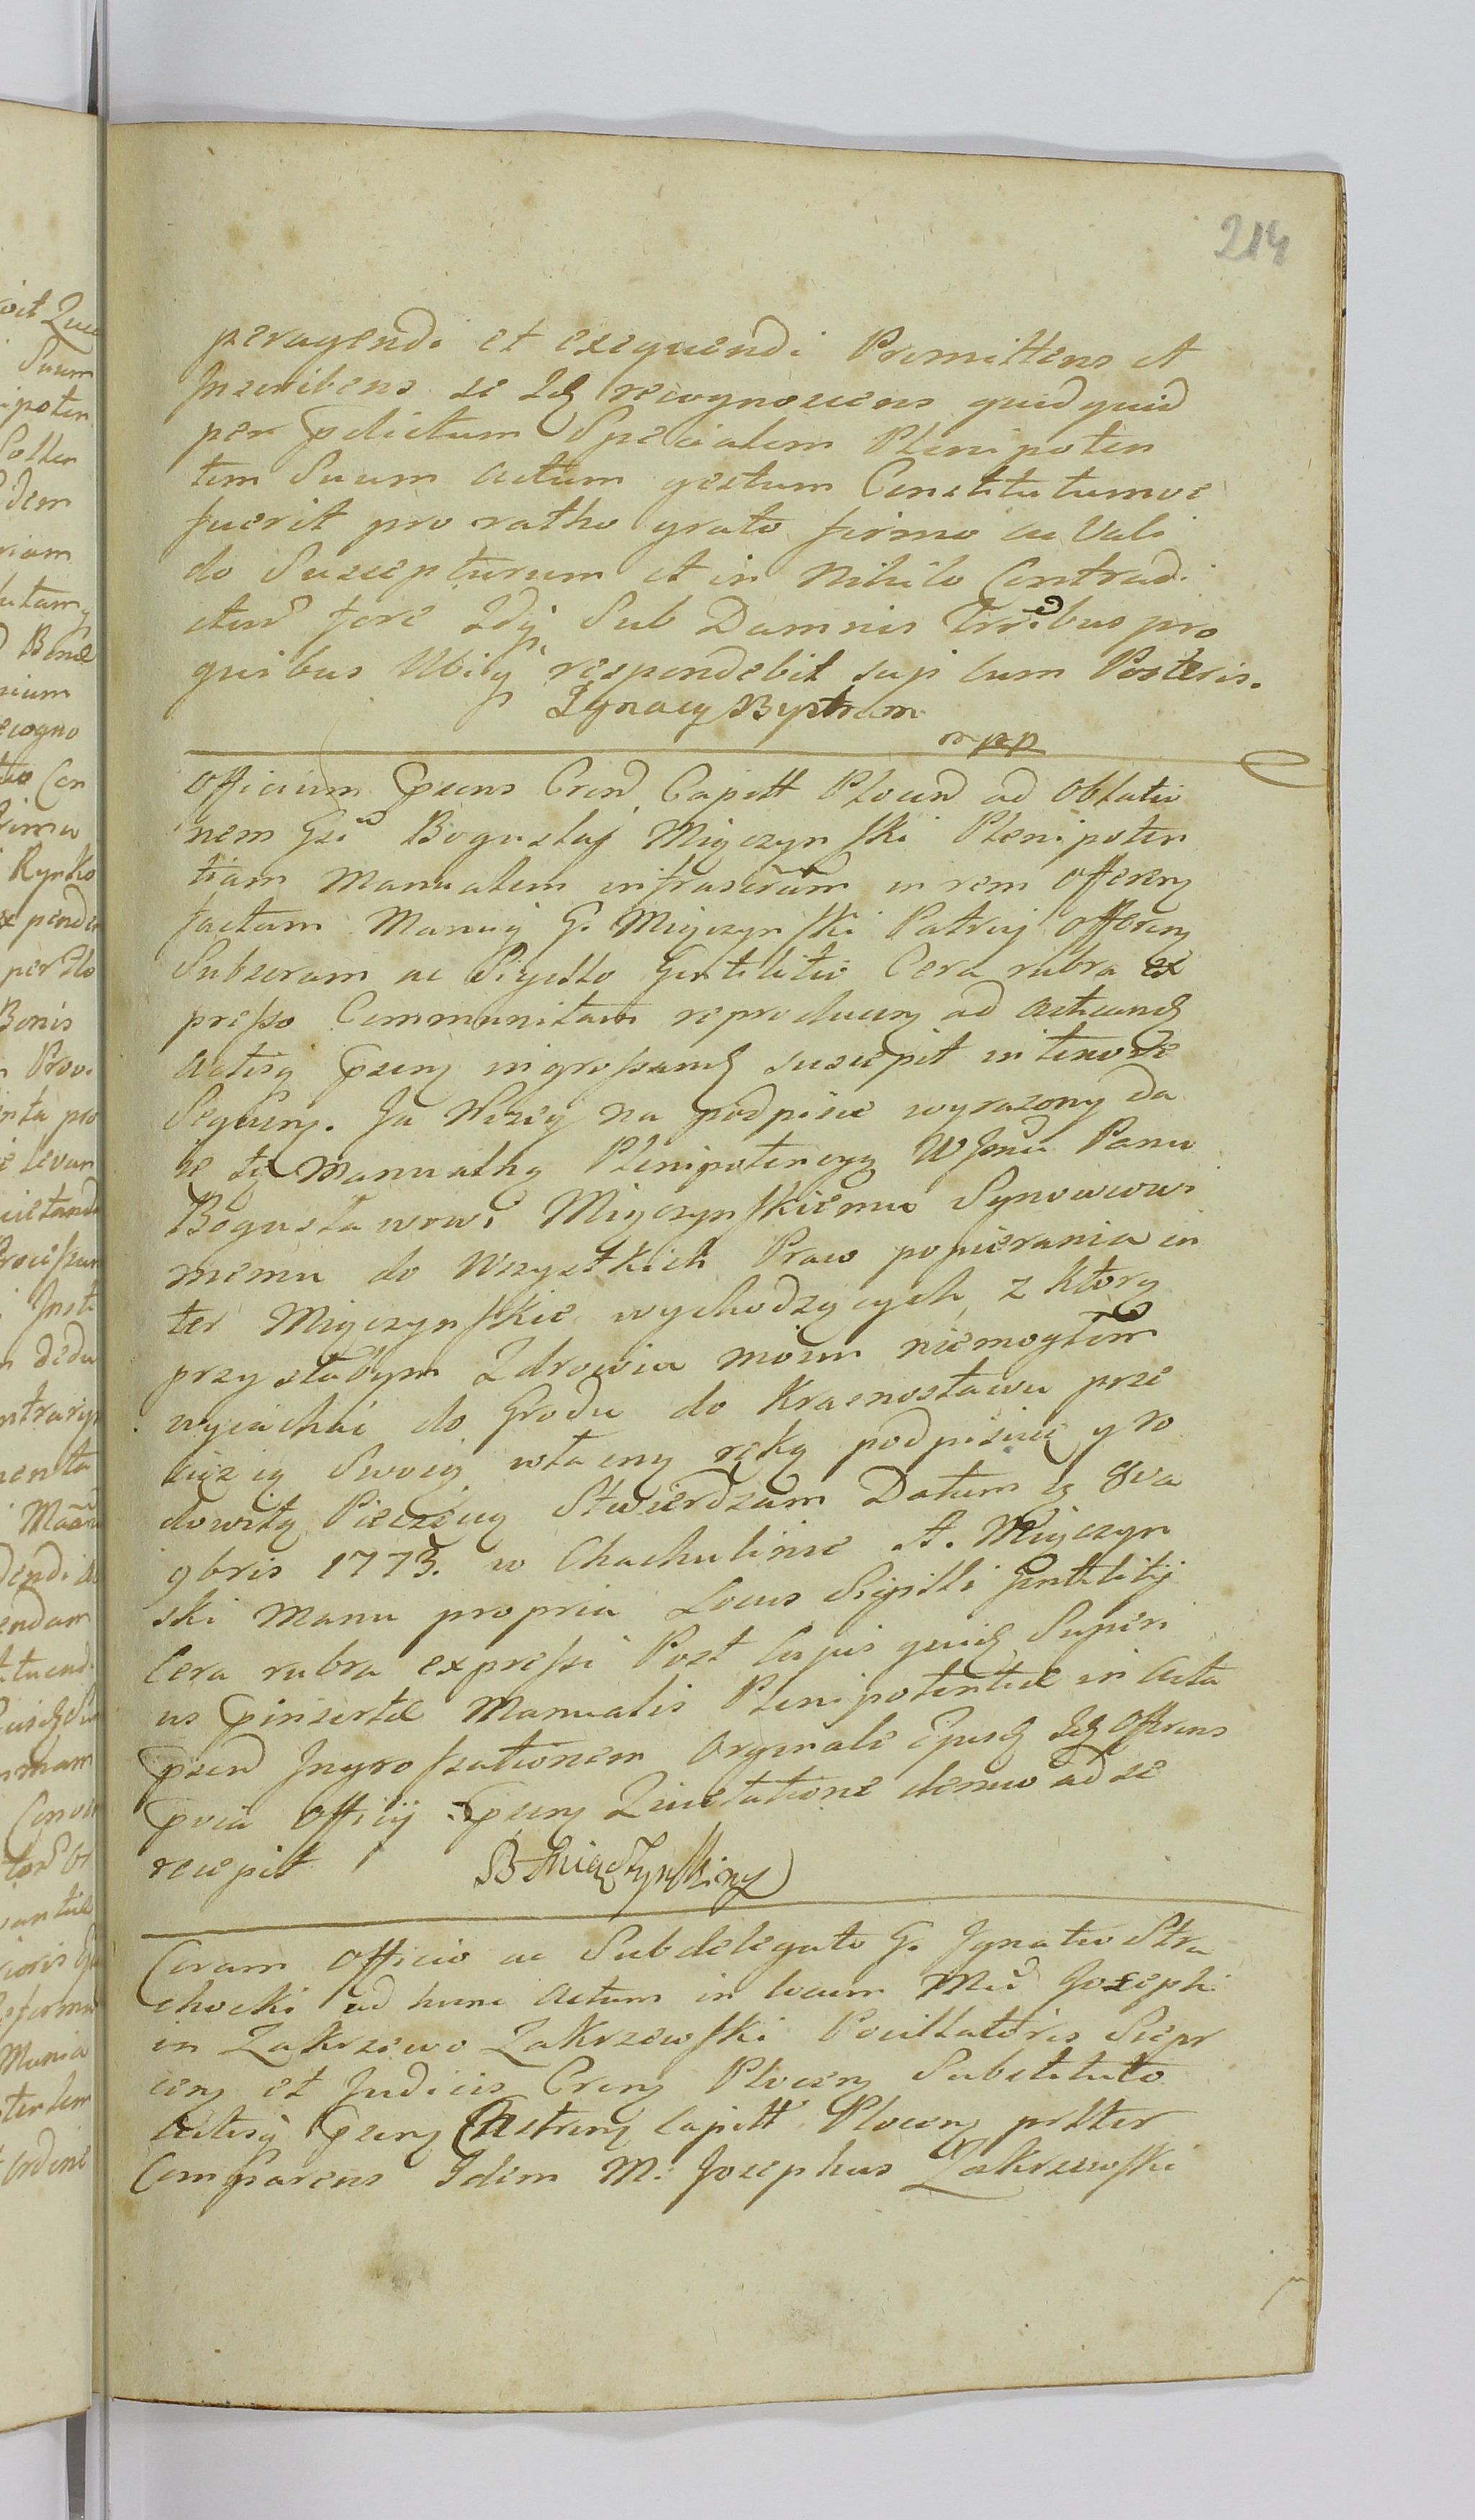 214
peragendi et exequendi Promittens et
Inscribens se Idq recognoscens quidquid
per pdictum Specialem Plenipoten
tem Suum actum gestum Constitutumve
fuerit pro ratho grato firmo ac Vali
do Suscepturum et in Nihilo Contradi
cturū fore Idq Sub Damnis Trribus pro
quibus Ubiq respondebit sup cum Posteris.
Ignacy Bystram
mpp
Officium Psens Crens Capitt Plocen ad Oblatio
nem Gsi Boguslaj Mięczynſki Plenipoten
tiam Manualem infrascrām in rem Offereng
factam Manuq G. Mięczynſki Patruj Offereng
Subscram ac Sigillo Gentilitio Cera rubra ex
preſso Communitam reproduceng ad acticandq
actisq Pseng ingroſsandq suscepit in tenore
Sequeng. Ja Niżey na podpisie wyrazony da
ie tę Manualną Plenipotencyą WJmu Panu
Bogusławowi Mięczynſkiemu Synowcowi
memu do Wszystkich Praw popierania in
ter Mięczynſkie wychodzących, z ktory
przy słabym Zdrowiu moim niemogłem
wyiachać do Grodu do Krasnostawu prze
to się Swoią własną ręką podpisuię y ro
dowitą Pieczęcią Stwierdzam Datum ią 8va
9bris 1773. w Chachulinie A. Mięczyn
ski Manu propria Locus Sigilli Gentilitij
Cera rubra expreſsi Post cujus quidq Superi
us pinsertæ Manualis Plenipotentiæ in Acta
psen Ingroſsationem Orginale Ipusq Idq Offerens
pvia Officij Pseng Quietatione denuo ad se
recepit
B Mięczynſki mp
Coram Officio ac Subdelegato G. Ignatio Stra
chocki ad hunc actum in locum Mci Josephi
in Zakrzewo Zakrzewſki Pocillatoris Sierp
ceng et Judicis Creng Ploceng Substituto
Actisq Pseng Castreng Capitt Ploceng prlter
Comparens Idem M. Josephus Zakrzewſki